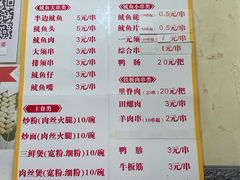 鱿鱼大串类
半边鱿鱼 5元/串
鱿鱼头 5元/串
鱿鱼肉 3元/串
大须串 3元/串
排须串 3元/串
鱿鱼仔 3元/串
鱿鱼嘴 3元/串
主食类
炒粉(肉丝火腿)10/碗
炒面(肉丝火腿)10/碗
三鲜煲(宽粉.细粉)10/碗
肉丝煲(宽粉.细粉)10/碗
鱿鱼小串类
鱿鱼花 0.5元/串
鱿鱼片 0.5元/串
一元须 1元/串
综合串 1元/串
鸭肠 20元/把
铁板肉串类
里脊肉 20元/把
田螺肉 3元/串
羊肉串 2元/串
鸭胗 3元/串
牛板筋 3元/串